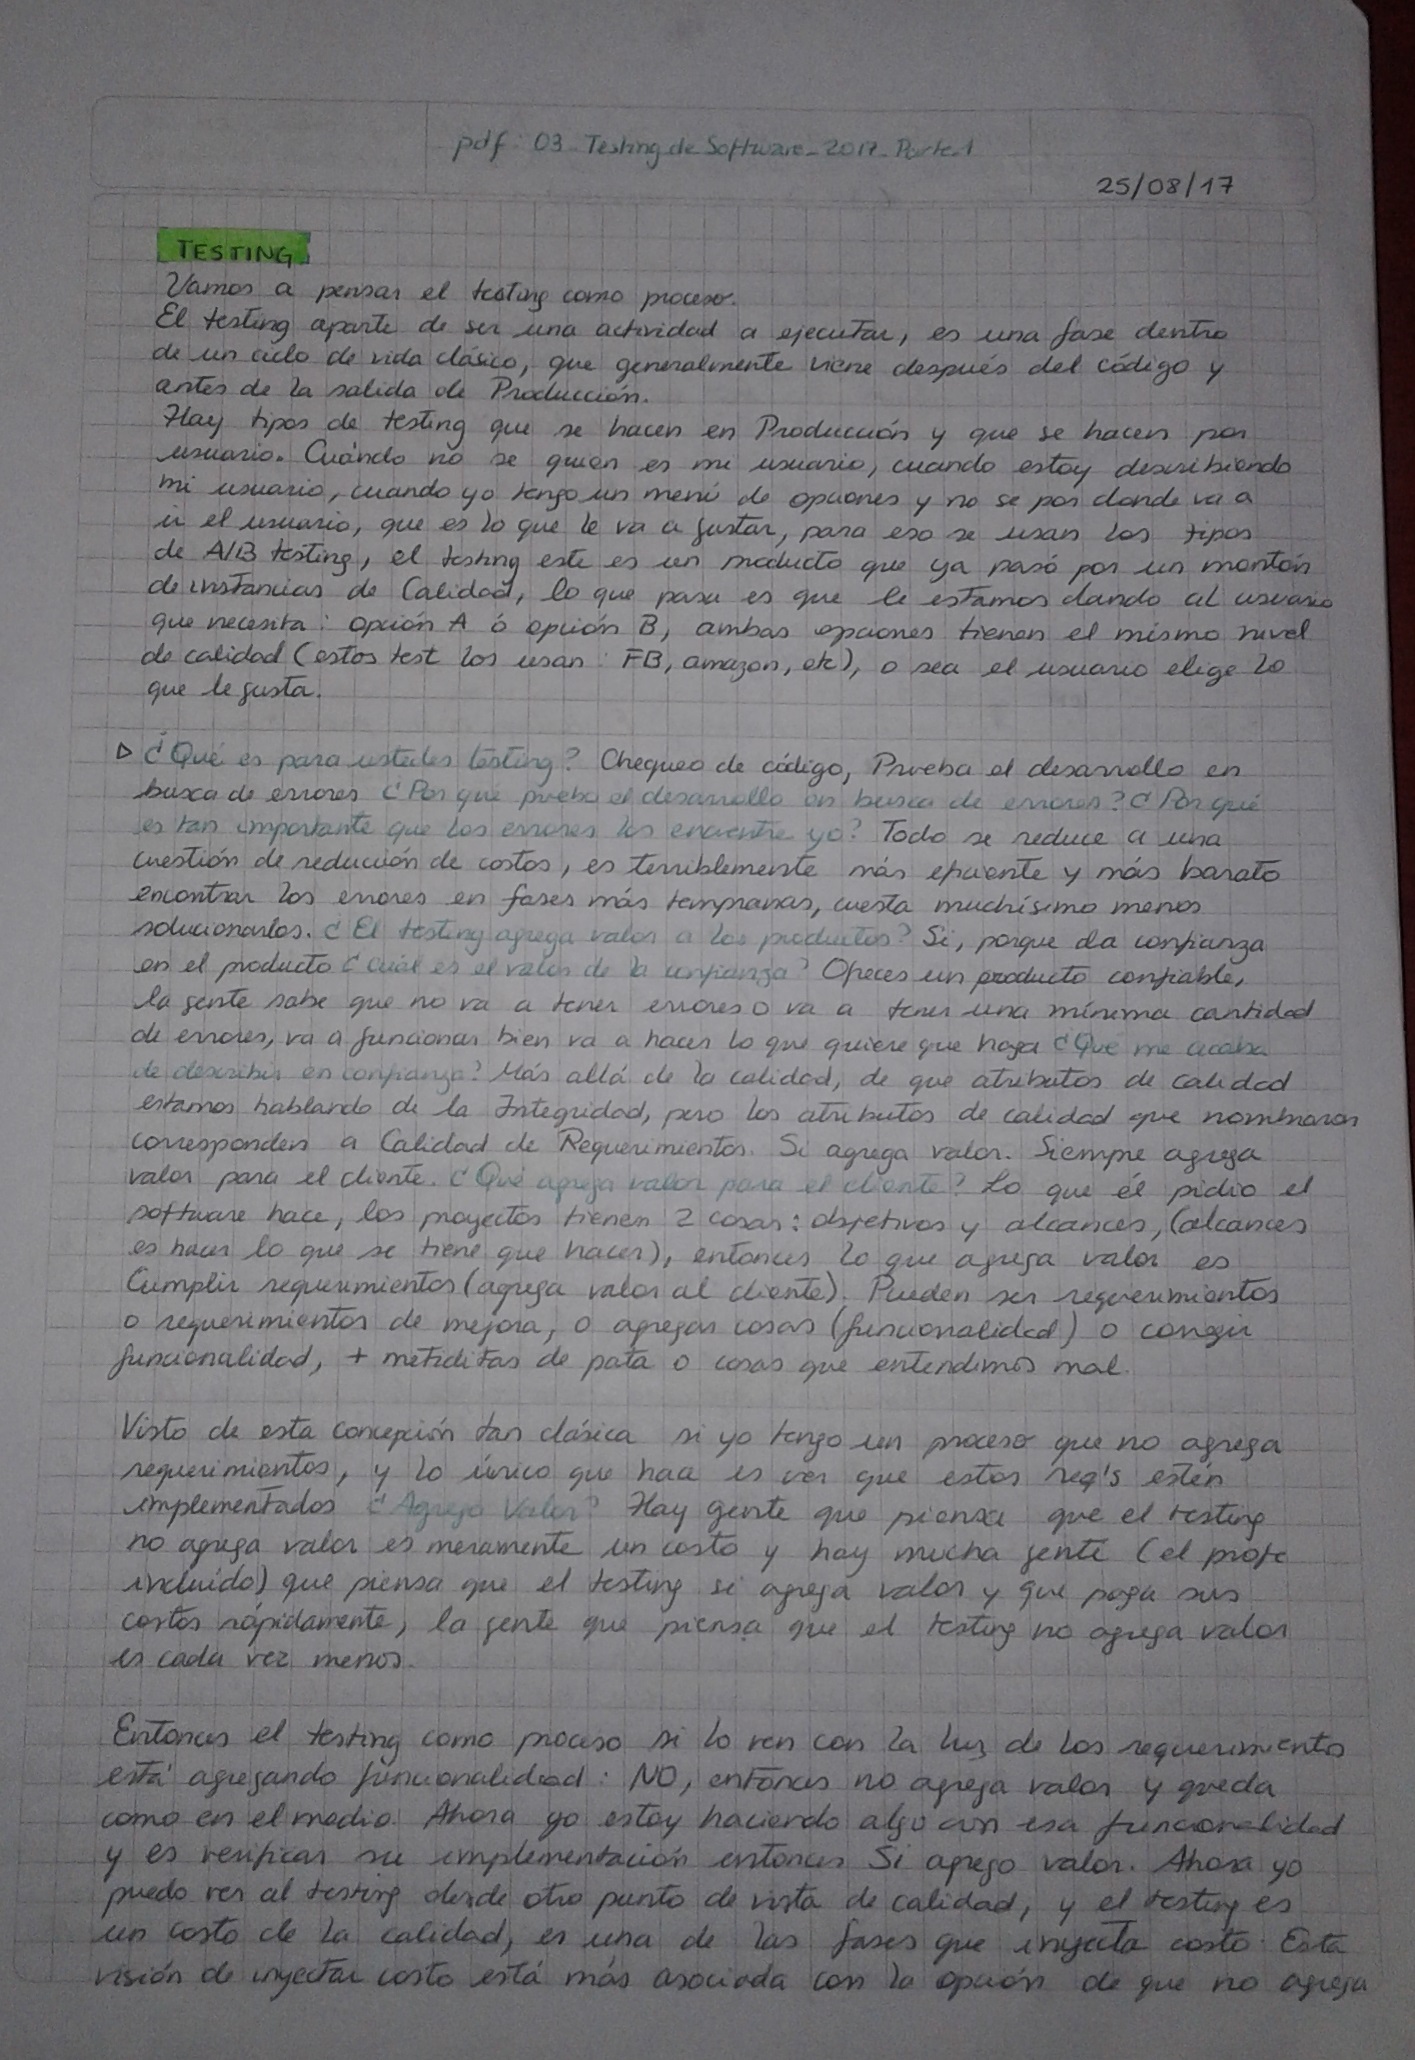 pdf: 03_Testing de Software_2017_Parte1
25/08/17
TESTING
Vamos a pensar el testing como proceso.
El testing aparte de ser una actividad a ejecutar, es una fase dentro
de un ciclo de vida clásico, que generalmente viene después del código y
antes de la salida de Producción.
Hay tipos de testing que se hacen en Producción y que se hacen por
usuario. Cuándo no se quien es mi usuario, cuando estoy describiendo
mi usuario, cuando yo tengo un menú de opciones y no se por donde va a
ir el usuario, que es lo que le va a gustar, para eso se usan los tipos
de A/B testing, el testing este es un producto que ya pasó por un montón
de instancias de Calidad, lo que pasa es que le estamos dando al usuario
que necesita: opción A ó opción B, ambas opciones tienen el mismo nivel
de calidad (estos test los usan: FB, amazon, etc), o sea el usuario elige lo
que le gusta.
▷ ¿Qué es para ustedes testing? Chequeo de código, Prueba el desarrollo en
busca de errores ¿Por qué prueba el desarrollo en busca de errores? ¿Por qué
es tan importante que los errores los encuentre yo? Todo se reduce a una
cuestión de reducción de costos, es terriblemente más eficiente y más barato
encontrar los errores en fases más tempranas, cuesta muchísimo menos
solucionarlos. ¿El testing agrega valor a los productos? Si, porque da confianza
en el producto ¿Cuál es el valor de la confianza? Ofreces un producto confiable,
la gente sabe que no va a tener errores o va a tener una mínima cantidad
de errores, va a funcionar bien va a hacer lo que quiere que haga ¿Que me acaba
de describir en confianza? Más allá de la calidad, de que atributos de calidad
estamos hablando de la Integridad, pero los atributos de calidad que nombraron
corresponden a Calidad de Requerimientos. Si agrega valor. Siempre agrega
valor para el cliente. ¿Qué agrega valor para el cliente? Lo que él pidio el
software hace, los proyectos tienen 2 cosas: objetivos y alcances, (alcances
es hacer lo que se tiene que hacer), entonces lo que agrega valor es
Cumplir requerimientos (agrega valor al cliente). Pueden ser requerimientos
o requerimientos de mejora, o agregar cosas (funcionalidad) o corregir
funcionalidad, + metiditas de pata o cosas que entendimos mal.
Visto de esta concepción tan clásica si yo tengo un proceso que no agrega
requerimientos, y lo único que hace es ver que estos req's estén
implementados ¿Agrego Valor? Hay gente que piensa que el testing
no agrega valor es meramente un costo y hay mucha gente (el profe
incluído) que piensa que el testing si agrega valor y que paga sus
costos rápidamente, la gente que piensa que el testing no agrega valor
es cada vez menos.
Entonces el testing como proceso si lo ven con la luz de los requerimientos
está agregando funcionalidad: NO, entonces no agrega valor y queda
como en el medio. Ahora yo estoy haciendo algo con esa funcionalidad
y es verificar su implementación entonces Si agrego valor. Ahora yo
puedo ver al testing desde otro punto de vista de calidad, y el testing es
un costo de la calidad, es una de las fases que inyecta costo. Esta
visión de inyectar costo está más asociada con la opción de que no agrega